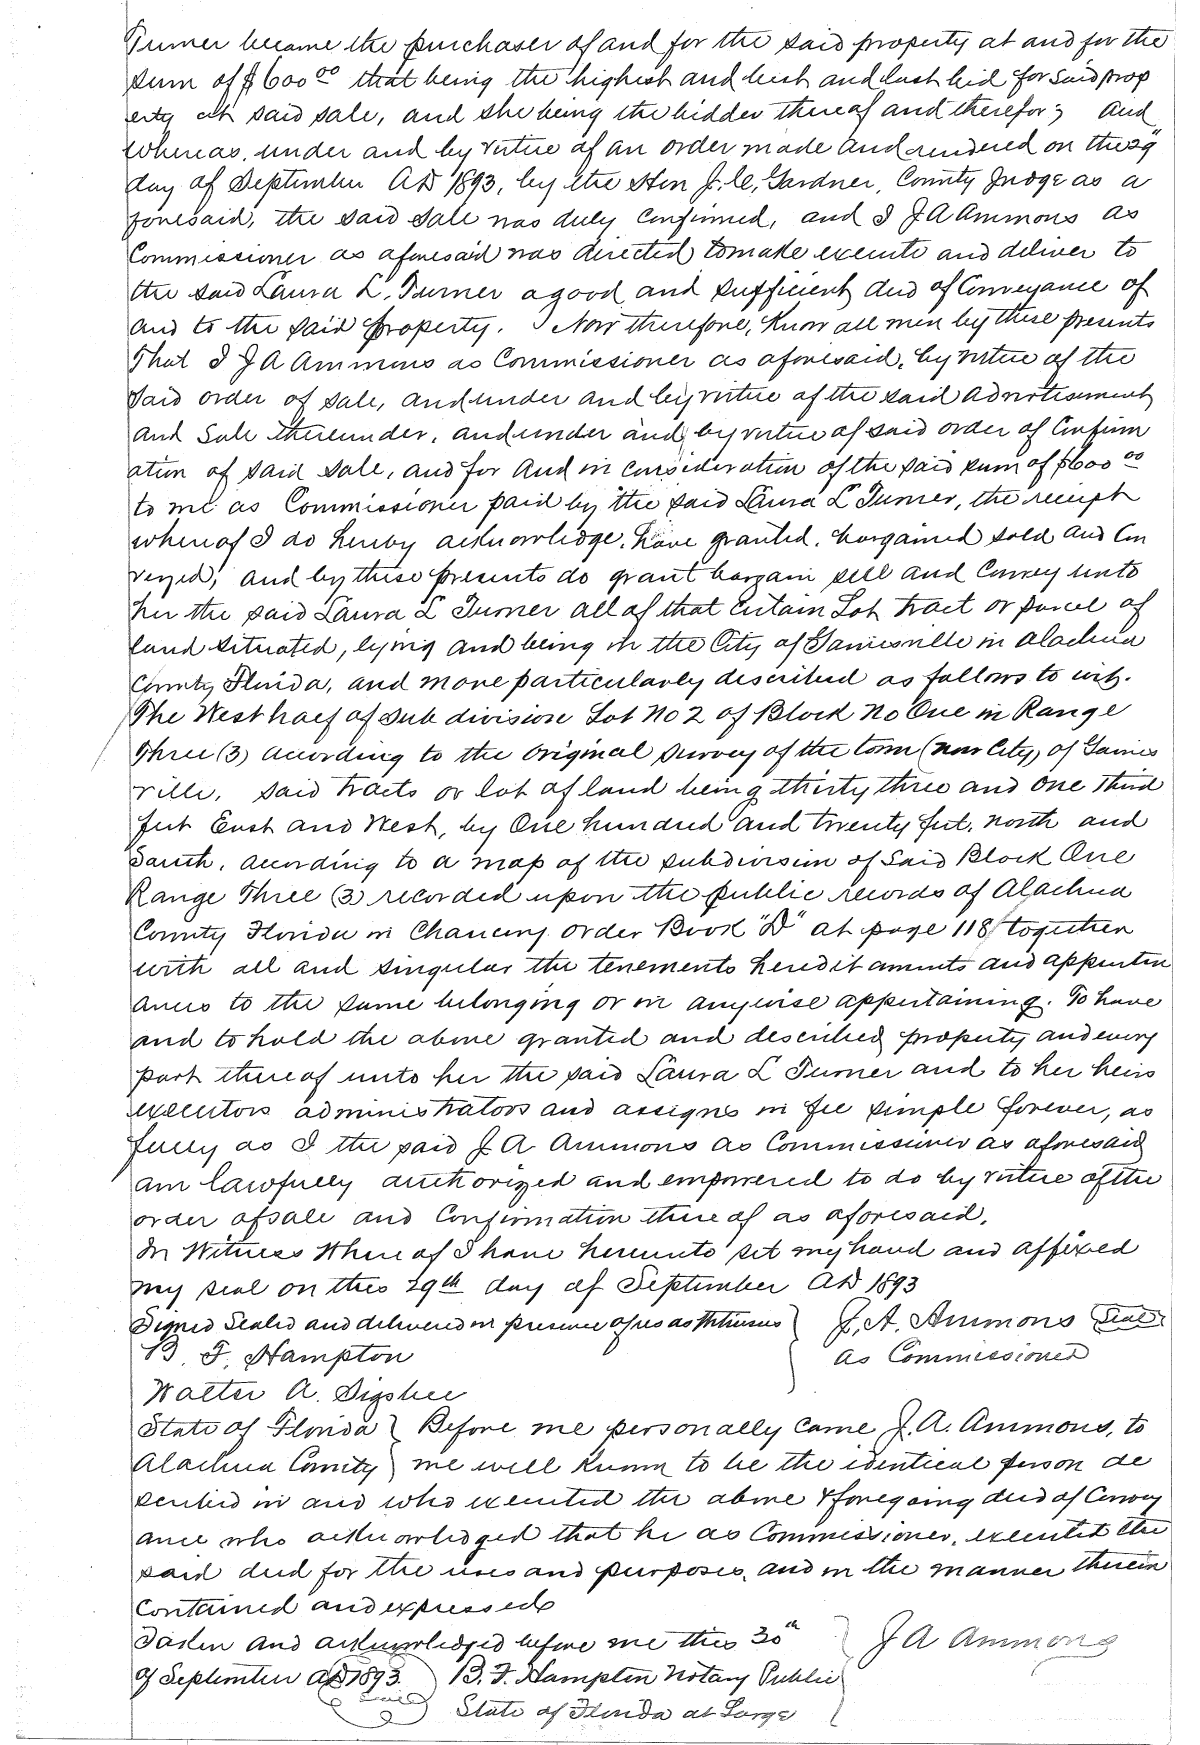 Turner became the purchaser of and for the said property at and for the
sum of $600 00 that being the highest and best and last bid for said prop
erty at said sale, and she being the bidder thereof and therefor; And
Whereas, under and by virtue of an order made and rendered on the 29"
day of September AD 1893, by the Hon J. C, Gardner, County Judge as a
foresaid, the said sale was duly confirmed, and I J A Ammons as
Commissioner as aforesaid was directed to make execute and deliver to
the said Laura L. Turner a good and sufficient deed of Conveyance of
and to the said property. Now therefore, Know all men by these presents
That I J A Ammons as Commissioner as aforesaid, by virtue of the
said order of sale, and under and by virtue of the said advertisement
and Sale thereunder, and under and by virtue of said order of Confirm
ation of said sale, and for and in consideration of the said sum of $600 00
to me as Commissioner paid by the said Laura L Turner, the receipt
whereof I do hereby acknowledge, have granted, bargained sold and Con
veyed, and by these presents do grant bargain sell and Convey unto
her the said Laura L Turner all of that certain Lot tract or parcel of
land situated, lying and being in the City of Gainesville in Alachua
County Florida, and more particularly described as follows to wit.
The West half of sub division Lot No 2 of Block No One in Range
Three (3) according to the original survey of the town (now City) of Gaines
ville, said tracts or lot of land being thirty three and one third
feet East and West, by One hundred and twenty feet, north and
South, according to a map of the subdivision of said Block One
Range Three (3) recorded upon the public records of Alachua
County Florida in Chancery order Book "D" at page 118 together
with all and singular the tenements heredit aments and appurten
ances to the same belonging or in anywise appertaining. To have
and to hold the above granted and described property and every
part thereof unto her the said Laura L Turner and to her heirs
executors administrators and assigns in fee simple forever, as
fully as I the said J A Ammons as Commissioner as aforesaid
am lawfully authorized and empowered to do by virtue of the
order of sale and Confirmation thereof as aforesaid.
In Witness Whereof I have hereunto set my hand and affixed
my seal on this 29th day of September AD 1893
Signed Sealed and delivered in presence of us as Witnesses J. A. Ammons Seal
B. F. Hampton as Commissioner
Walter A. Sigsbee
State of Florida Before me personally came J. A. Ammons, to
Alachua County me well known to be the identical person de
scribed in and who executed the above & foregoing deed of Convey
ance who acknowledged that he as Commissioner, executed the
said deed for the uses and purposes, and in the manner therein
Contained and expressed
Taken and acknowledged before me this 30th J A Ammons
of September AD 1893. B. F. Hampton Notary Public
Seal State of Florida at Large